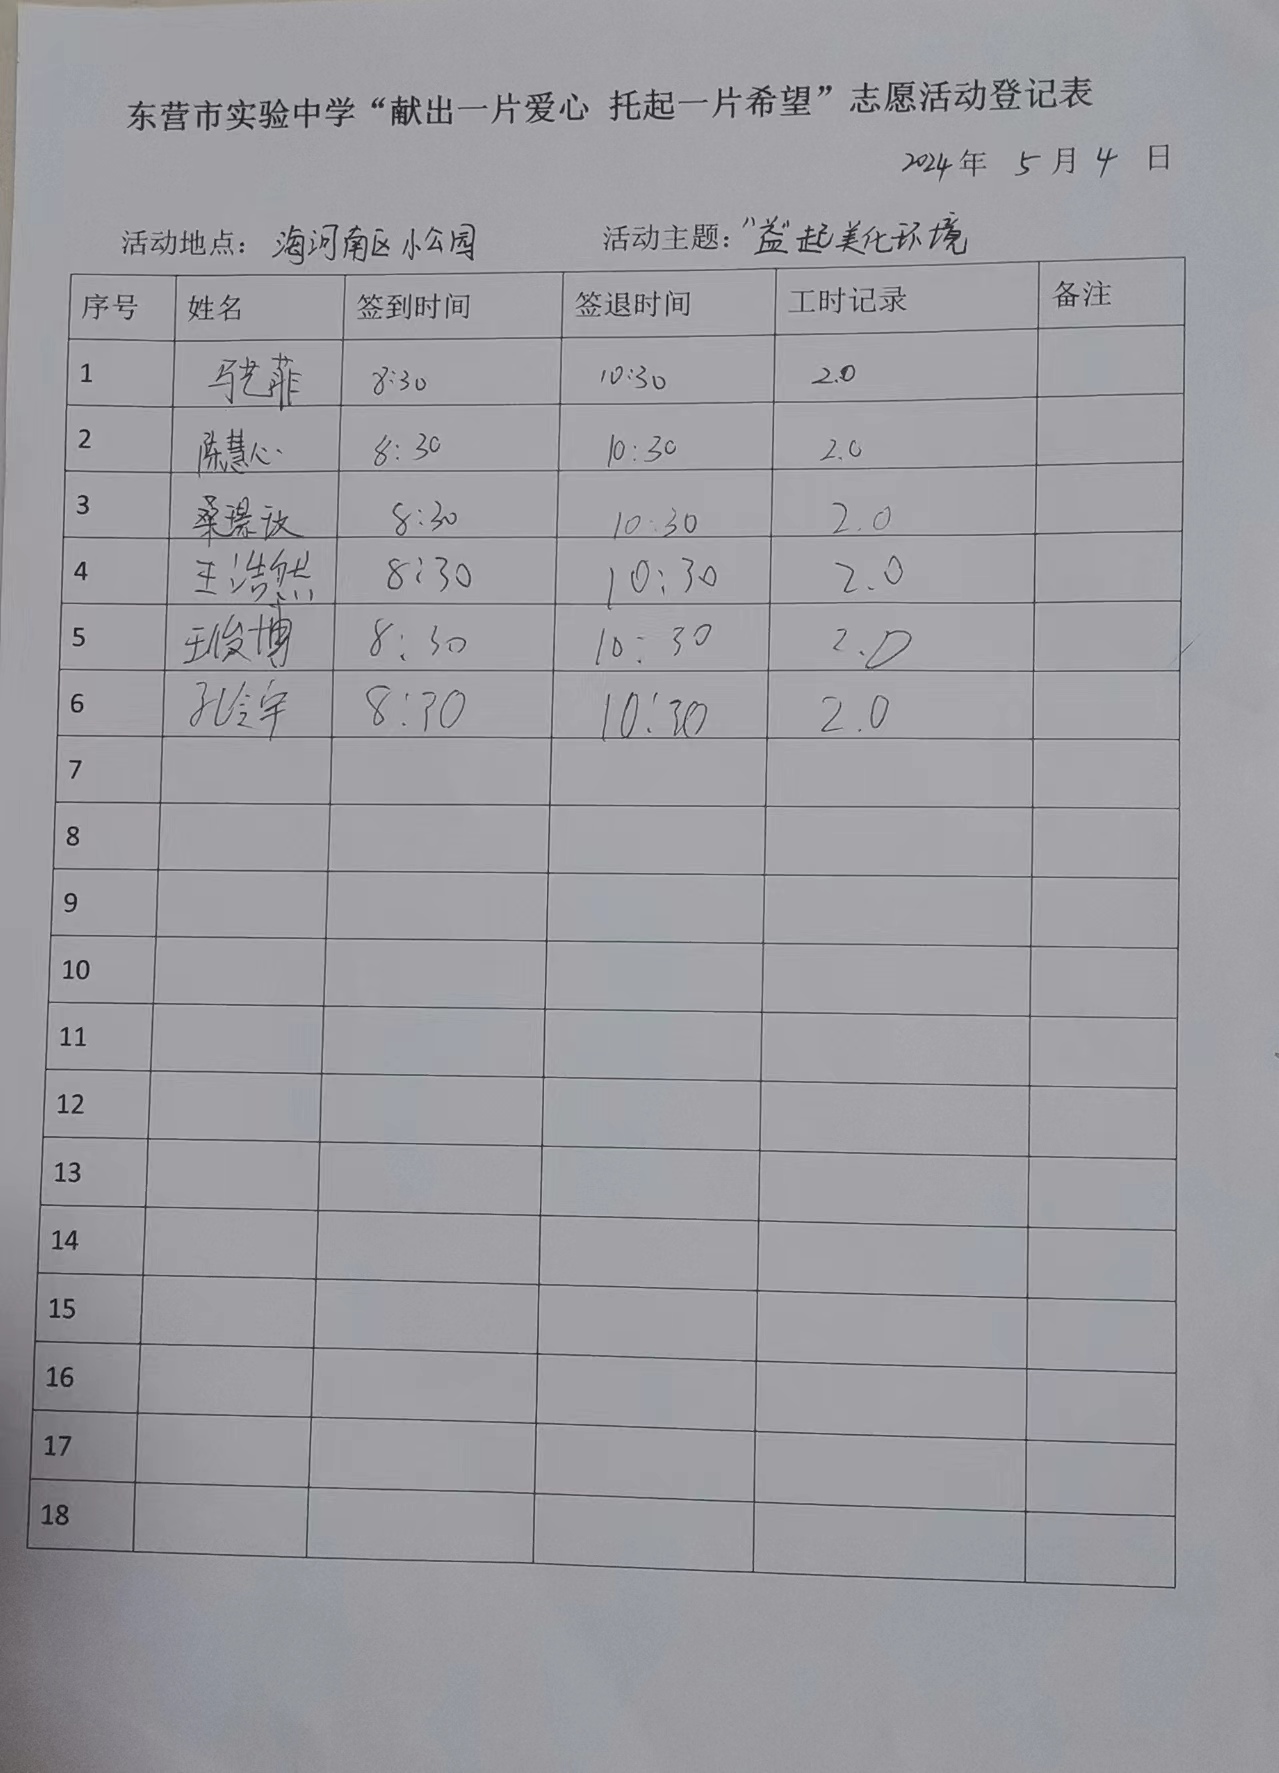 东营市实验中学“献出一片爱心 托起一片希望”志愿活动登记表
2024年 5月4日
活动地点：海河南区小公园 活动主题：“益”起美化环境
序号 姓名 签到时间 签退时间 工时记录 备注
1 马艺菲 8:30 10:30 2.0
2 陈慧心 8:30 10:30 2.0
3 桑璟 8:30 10:30 2.0
4 王浩然 8:30 10:30 2.0
5 王俊博 8:30 10:30 2.0
6 孔令宇 8:30 10:30 2.0
7
8
9
10
11
12
13
14
15
16
17
18